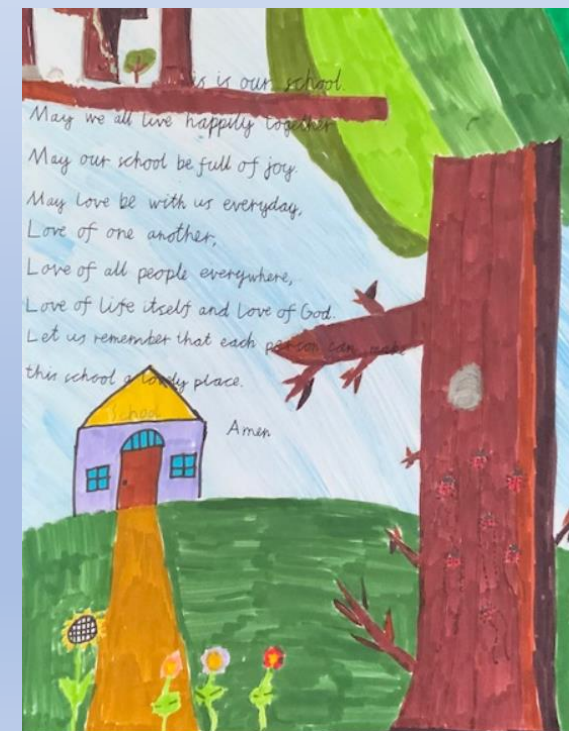 is is our school.
May we all live happily together
May our school be full of joy.
May love be with us everyday,
Love of one another,
Love of all people everywhere,
Love of life itself and love of God.
Let us remember that each person can make
this school a lovely place.
School
Amen